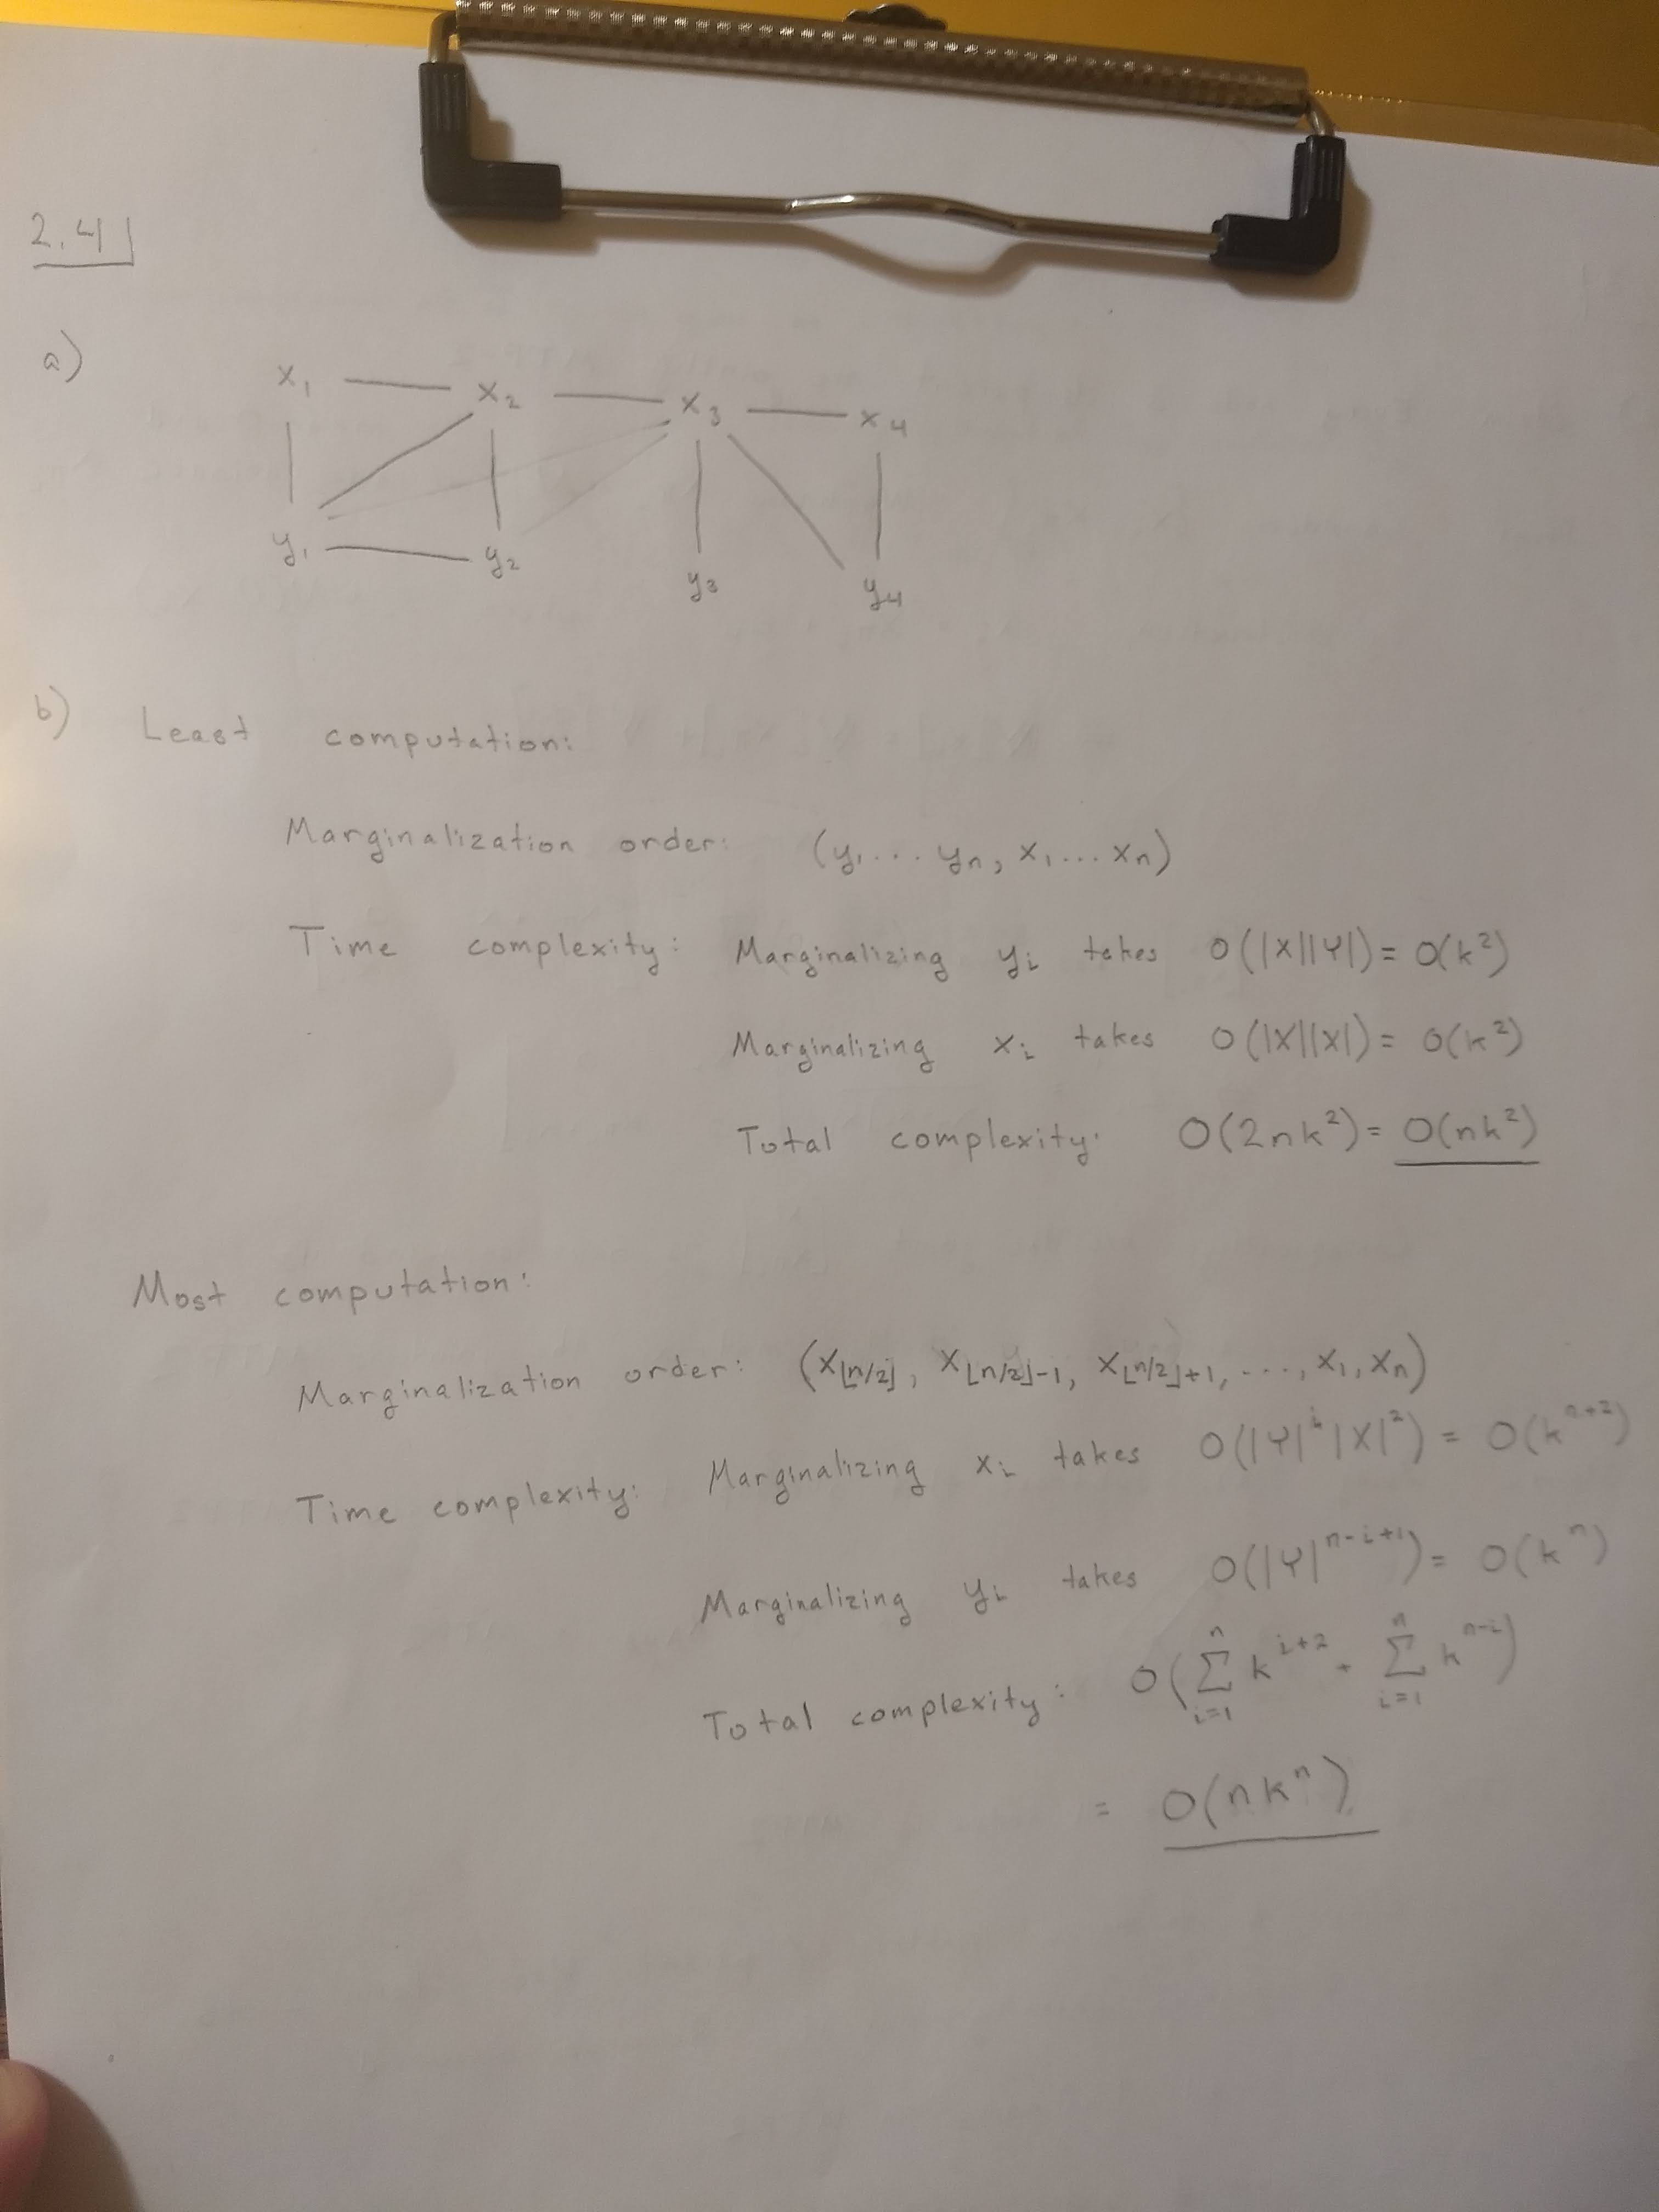 2.4
a)
x₁ x₂ x₃ x₄
y₁ y₂ y₃ y₄
b) Least computation:
Marginalization order: (y₁...yₙ, x₁...xₙ)
Time complexity: Marginalizing yᵢ takes O(|X||Y|) = O(k²)
Marginalizing xᵢ takes O(|X||X|) = O(k²)
Total complexity: O(2nk²) = O(nk²)
Most computation:
Marginalization order: (x_⌊n/2⌋, x_⌊n/2⌋-1, x_⌊n/2⌋+1, ..., x₁, xₙ)
Time complexity: Marginalizing xᵢ takes O(|Y|ⁱ|X|²) = O(kⁿ⁺²)
Marginalizing yᵢ takes O(|Y|ⁿ⁻ⁱ⁺¹) = O(kⁿ)
Total complexity: O(∑ᵢ₌₁ⁿ kⁱ⁺² + ∑ᵢ₌₁ⁿ kⁿ⁻ⁱ)
= O(nkⁿ)